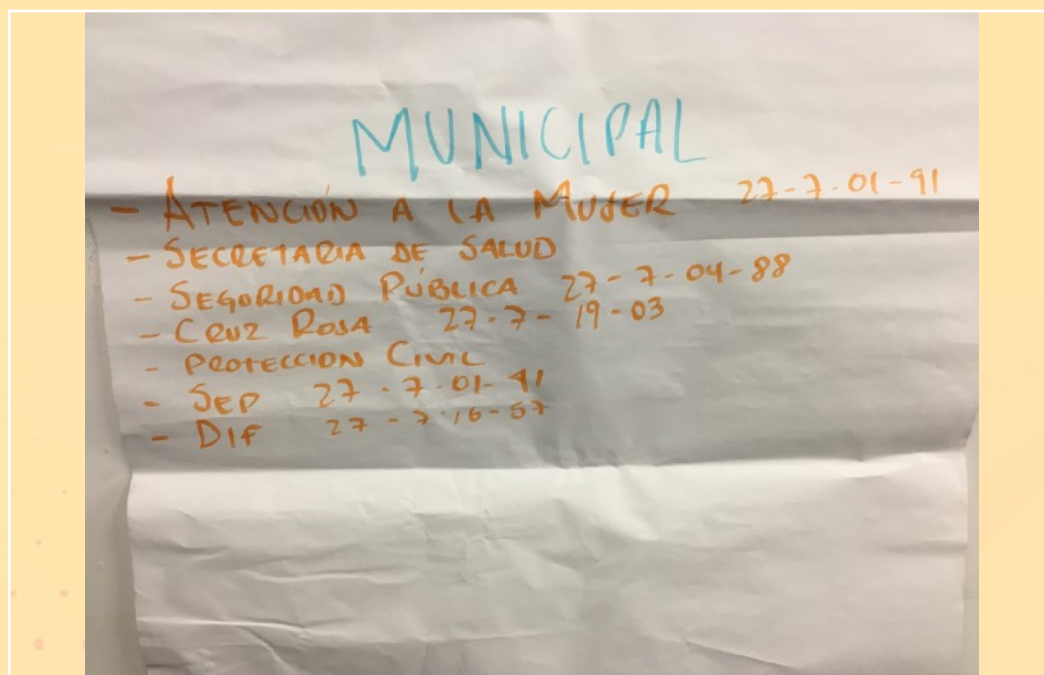 MUNICIPAL
- ATENCIÓN A LA MUJER 27-7-01-91
- SECRETARIA DE SALUD
- SEGURIDAD PÚBLICA 27-7-04-88
- CRUZ ROSA 27-7-19-03
- PROTECCION CIVIL
- SEP 27-7-01-91
- DIF 27-7-16-57